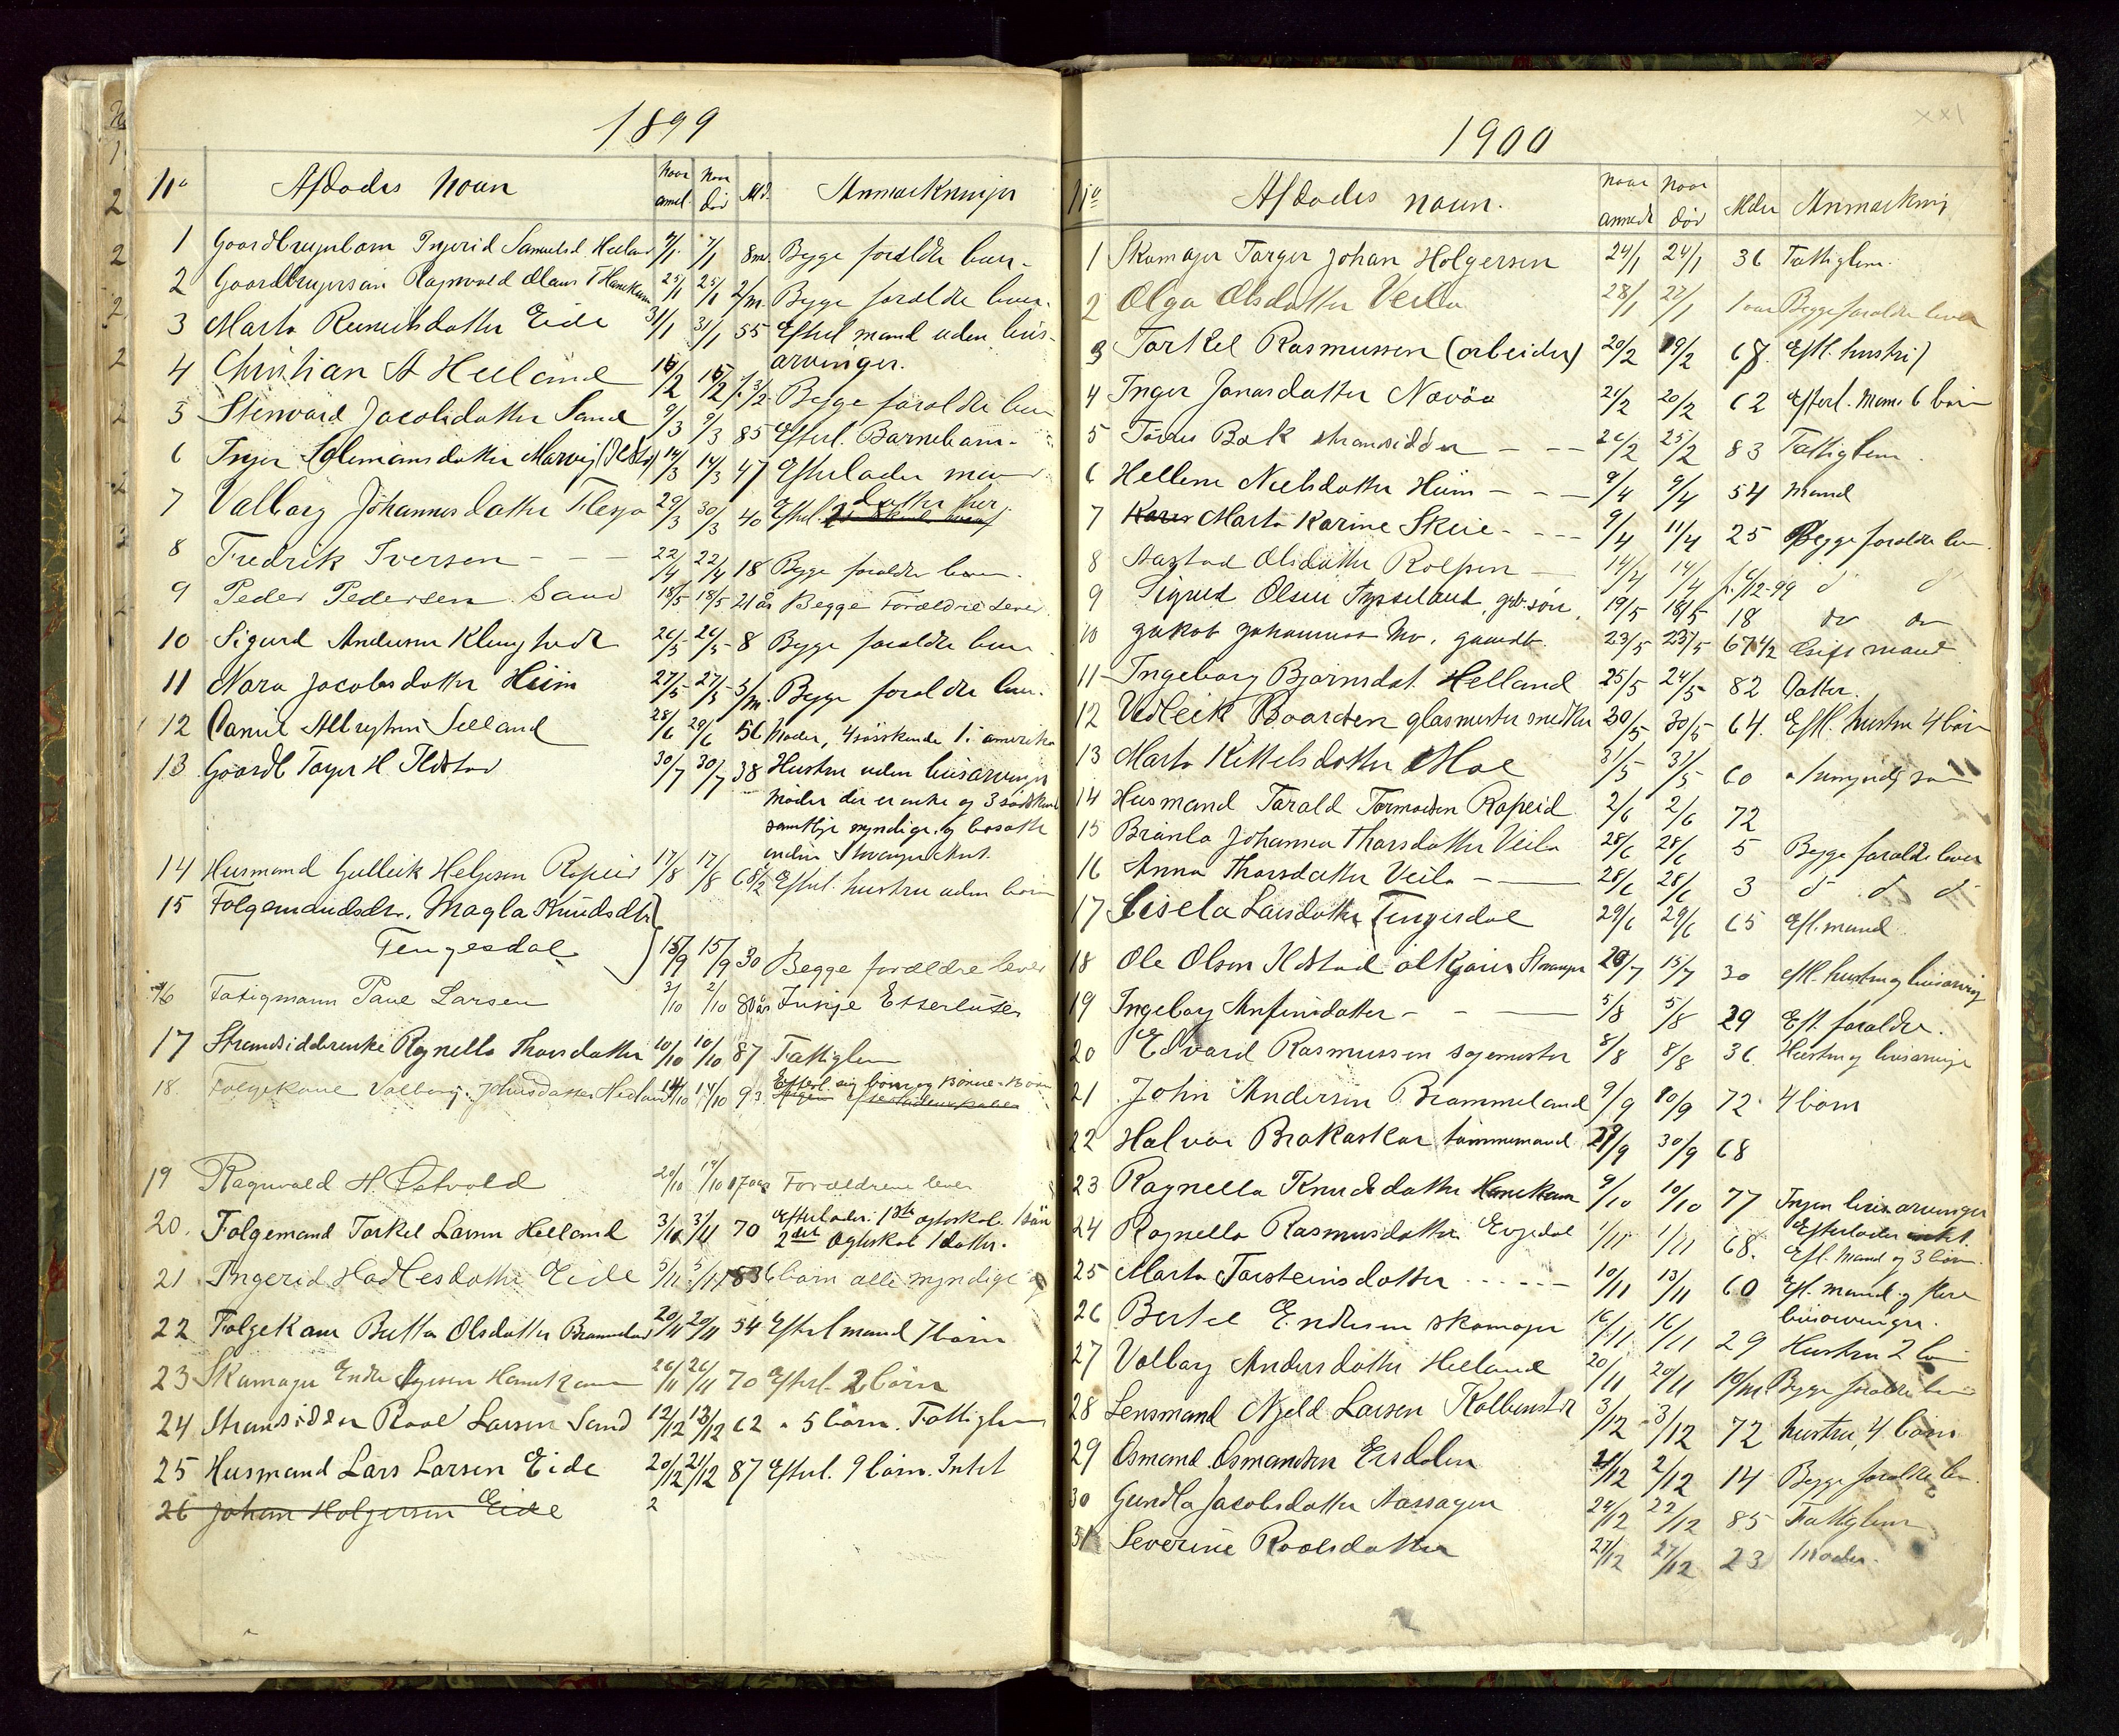 1899
No Afdødes Navn Naar anmel. Naar død Ald. Anmærkninger
1 Gaardbrugerbarn Ingerid Samuelsd. Helland 7/1 7/1 8 md. Begge forældre lever
2 Gaardbrugersøn Ragnvald Olaus T Hanekam 25/1 25/1 2/m. Begge forældre lever.
3 Marta Reinertsdatter Eide 31/1 31/1 55 Efterl mand uden livs-
arvinger.
4 Christian A Helland 16/2 16/2 Begge forældre lever
5 Stenvard Jacobsdatter Sand 9/3 9/3 85 Efterl. Barnebarn-
6 Inger Salemansdatter Marvig 14/3 14/3 47 Efterlader mand
7 Valborg Johannesdatter Flesja 29/3 30/3 40 Efterl. datter her.
8 Fredrik Iversen - - - 22/4 22/4 18 Begge forældre lever.
9 Peder Pedersen Sand 18/5 18/5 21 år Begge Forældre Lever.
10 Sigurd Andersen Klungtvedt 26/5 26/5 8 Begge forældre lever
11 Nora Jacobsdatter Heim 27/5 27/5 3/m. Begge forældre lever.
12 Daniel Albregtsen Selland 28/6 29/6 56 Moder, 4 søskende 1 i amerika
13 Gaardb Tøger H. Ilstad 30/7 30/7 38 Hustru uden livsarvinger
Moder der er enke og 3 sødskend
samtlige myndige og bosatte
inden Stavanger Amt.
14 Husmand Gulleik Helgesen Ropeid 17/8 17/8 68 1/2 Efterl. hustru uden børn
15 Følgemandsdtr. Magla Knudsdtr
Tengesdal 15/9 15/9 30 Begge forældre lever
16 Fatigmann Paul Larsen 3/10 2/10 80 år Inkje Etterlater
17 Strandsidderenke Ragnella Thorsdatter 10/10 10/10 87 Fattiglem
18. Følgekone Valborg Johnsdatter Helland 14/10 14/10 93. Efterl. sig børn og Børne-Børn
19 Ragnvald H. Østvold 20/10 19/10 17 aar Forældrene lever
20. Følgemand Torkel Larsen Helland 3/11 3/11 70 Efterlader. 1ste ægteskab. 1 søn
2det Ægteskab 1 datter.
21 Ingerid Hadlesdatter Eide 5/11 5/11 83 6 børn alle myndige
22 Følgekone Britta Olsdatter Brommeland 20/11 20/11 54 Efterl mand 7 børn
23 Skomager Endre Aagesen Hanekam 26/11 26/11 70 Efterl. 2 børn
24 Strandsidder Roal Larsen Sand 12/12 13/12 62 " 5 børn. Fattiglem
25 Husmand Lars Larsen Eide 20/12 21/12 87 Efterl. 9 børn. Intet
26 Johan Holgersen Eide 2
1900
No Afdødes navn. Naar anmeldt Naar død Alder Anmærkning
1 Skomager Tørger Johan Holgersen 24/1 24/1 36 Fattiglem.
2 Olga Olsdatter Veila 28/1 27/1 1 aar Begge forældre lever
3 Torkel Rasmussen (arbeider) 20/2 19/2 67. Eftl. hustri)
4 Inger Jonasdatter Novåa 21/2 20/2 62 Efterl. Man. 6 børn
5 Tørres Bak strandsidder - - - 26/2 25/2 83 Fattiglem.
6 Hellene Neelsdatter Heim - - - 9/4 9/4 54 Mand
7 Marta Karine Skeie - - - 9/4 11/4 25 Begge forældre lev.
8 Aastad Olsdatter Roepen 14/4 14/4 f. 6/12-99 do do
9 Sigurd Olsen Fysseland, gdb. søn, 19/5 18/5 18 do do
10 Jakob Johannesen Mo, gaardb. 23/5 23/5 67 1/2 Gift mand
11 Ingeborg Bjørnsdat. Helland 25/5 24/5 82 Datter.
12 Vedleik Baardsen glasmester snedker 30/5 30/5 64. Eftl. hustru 4 børn
13 Marta Kittelsdatter Moe 31/5 31/5 60 " 1 umyndig søn
14 Husmand Tarald Tormodsen Ropeid 2/6 2/6 72
15 Brånla Johanna Thorsdatter Veila 28/6 28/6 5 Begge forældre lever
16 Anna Thorsdatter Veila - 28/6 28/6 3 do do do
17 Lisela Larsdatter Tengesdal 29/6 29/6 65 Eft. mand
18 Ole Olsen Ilstad ølkjører Stavanger 20/7 15/7 30 eftl. hustru og livsarving
19 Ingeborg Anfinsdatter - - 5/8 5/8 29 Eft. forældre.
20 Edvard Rasmussen sagmester 8/8 8/8 36 Hustru og livsarvinge
21 John Andersen Brommeland 9/9 10/9 72. 4 børn
22 Halvor Brakaskar tømmermand 29/9 30/9 68
23 Ragnella Knudsdatter Hanekam 9/10 10/10 77 Ingen livsarvinger
Efterlader intet.
24 Ragnella Rasmusdatter Ersdal 1/11 1/11 68. Eft. Mand og 3 børn.
25 Marta Torsteinsdatter - - - - - 10/11 13/11 60 Eft. Mand og flere
livsarvinger.
26 Bertel Endresen skomager 16/11 16/11 29 Hustru 2 børn
27 Valborg Andersdatter Helland 20/11 20/11 10/m Begge forældre lever
28 Lensmand Njeld Larsen Kolbenstvt 3/12 3/12 72 hustru, 4 børn
29 Osmand Osmandsen Ersdalen 2/12 2/12 14 Begge forældre lev.
30 Gundla Jacobsdatter Aassagen 24/12 22/12 85 Fattiglem
31 Severine Roalsdatter 27/12 27/12 23 Moder.